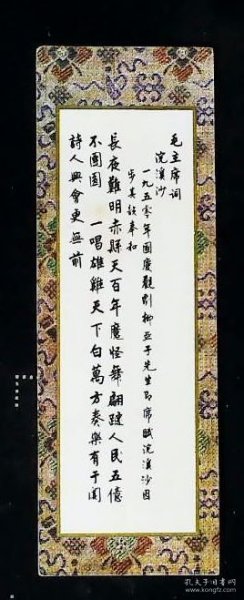 毛主席词
浣溪沙
一九五零年國慶觀劇柳亞子先生即席賦浣溪沙因
步其韵奉和
長夜難明赤縣天百年魔怪舞翩躚人民五億
不團圓 一唱雄雞天下白萬方奏樂有于闐
詩人興會更無前
孔夫子旧书网